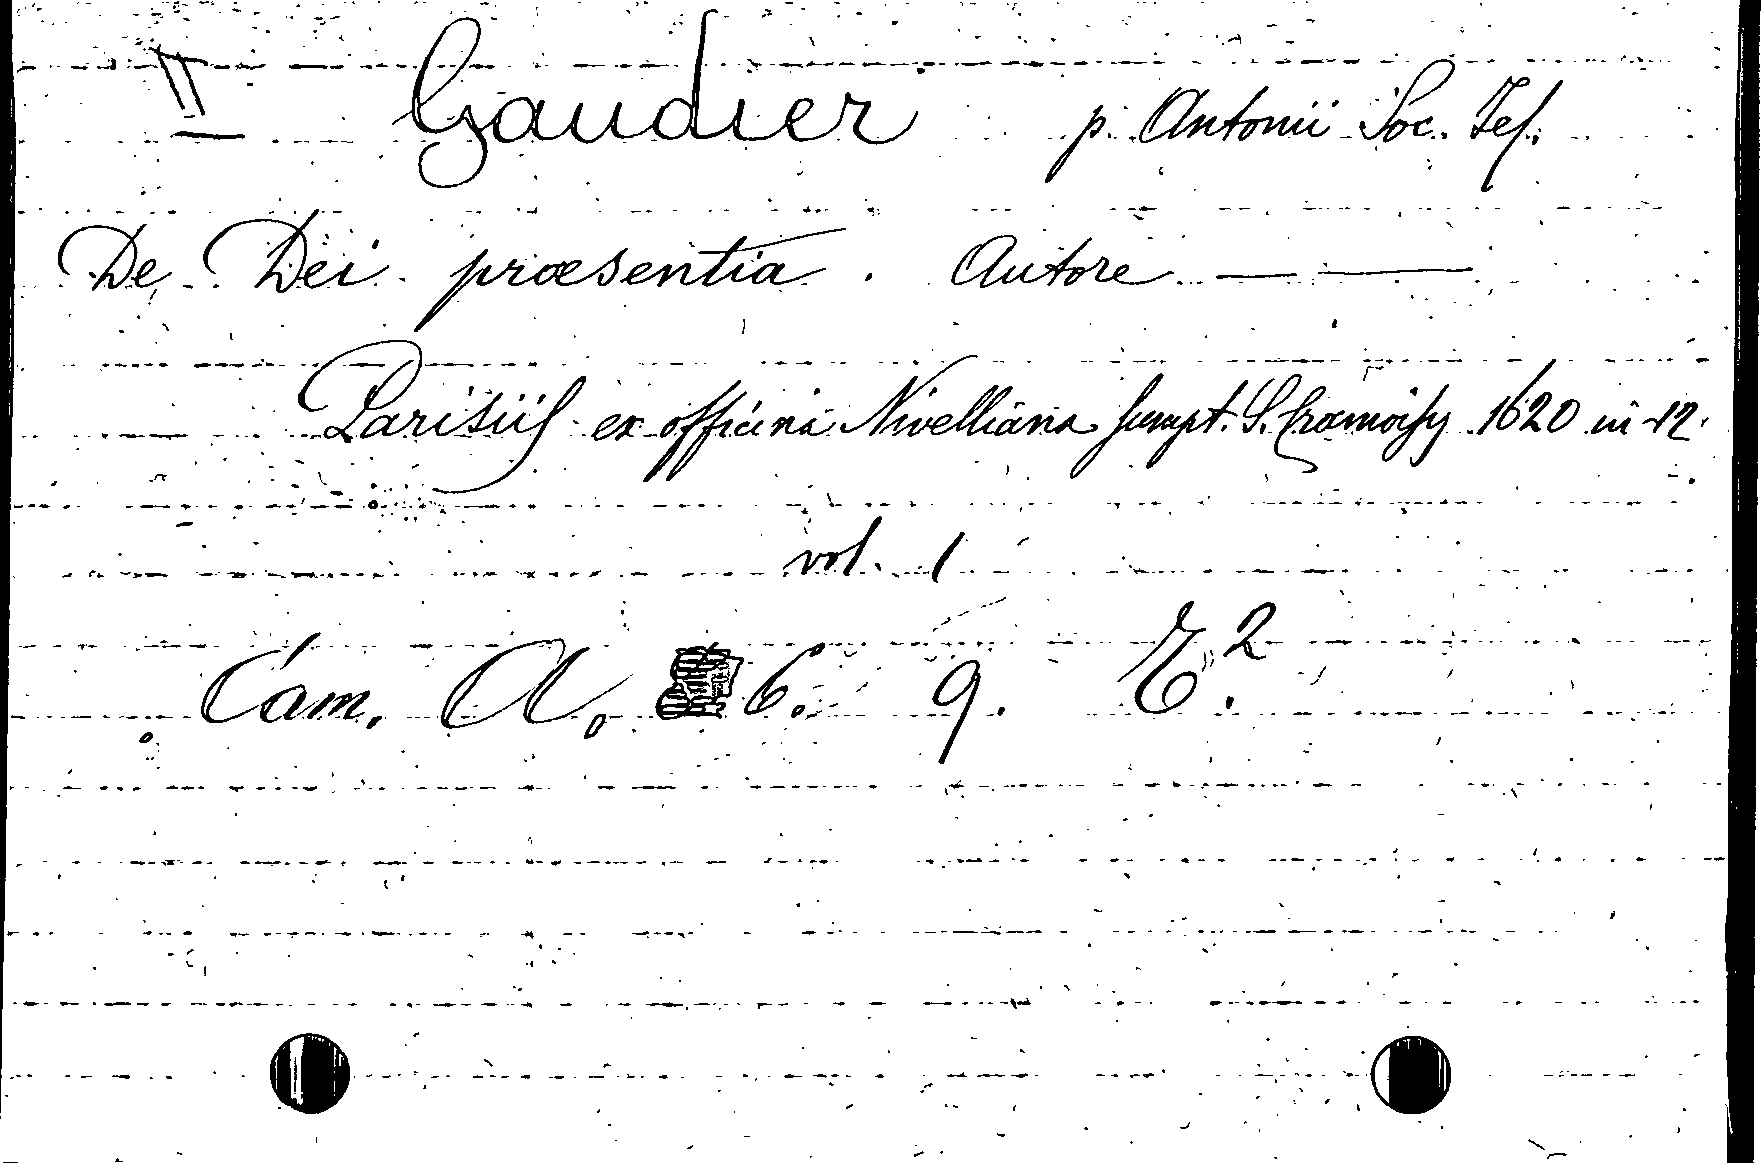 II Gaudier p. Antonii Soc. Jes.
De Dei praesentia. Autore — —
Parisiis ex officina Nivelliana sumpt. S. Cramoisy 1620 in-12.
vol. 1
Cam. A. 6. 9. E².